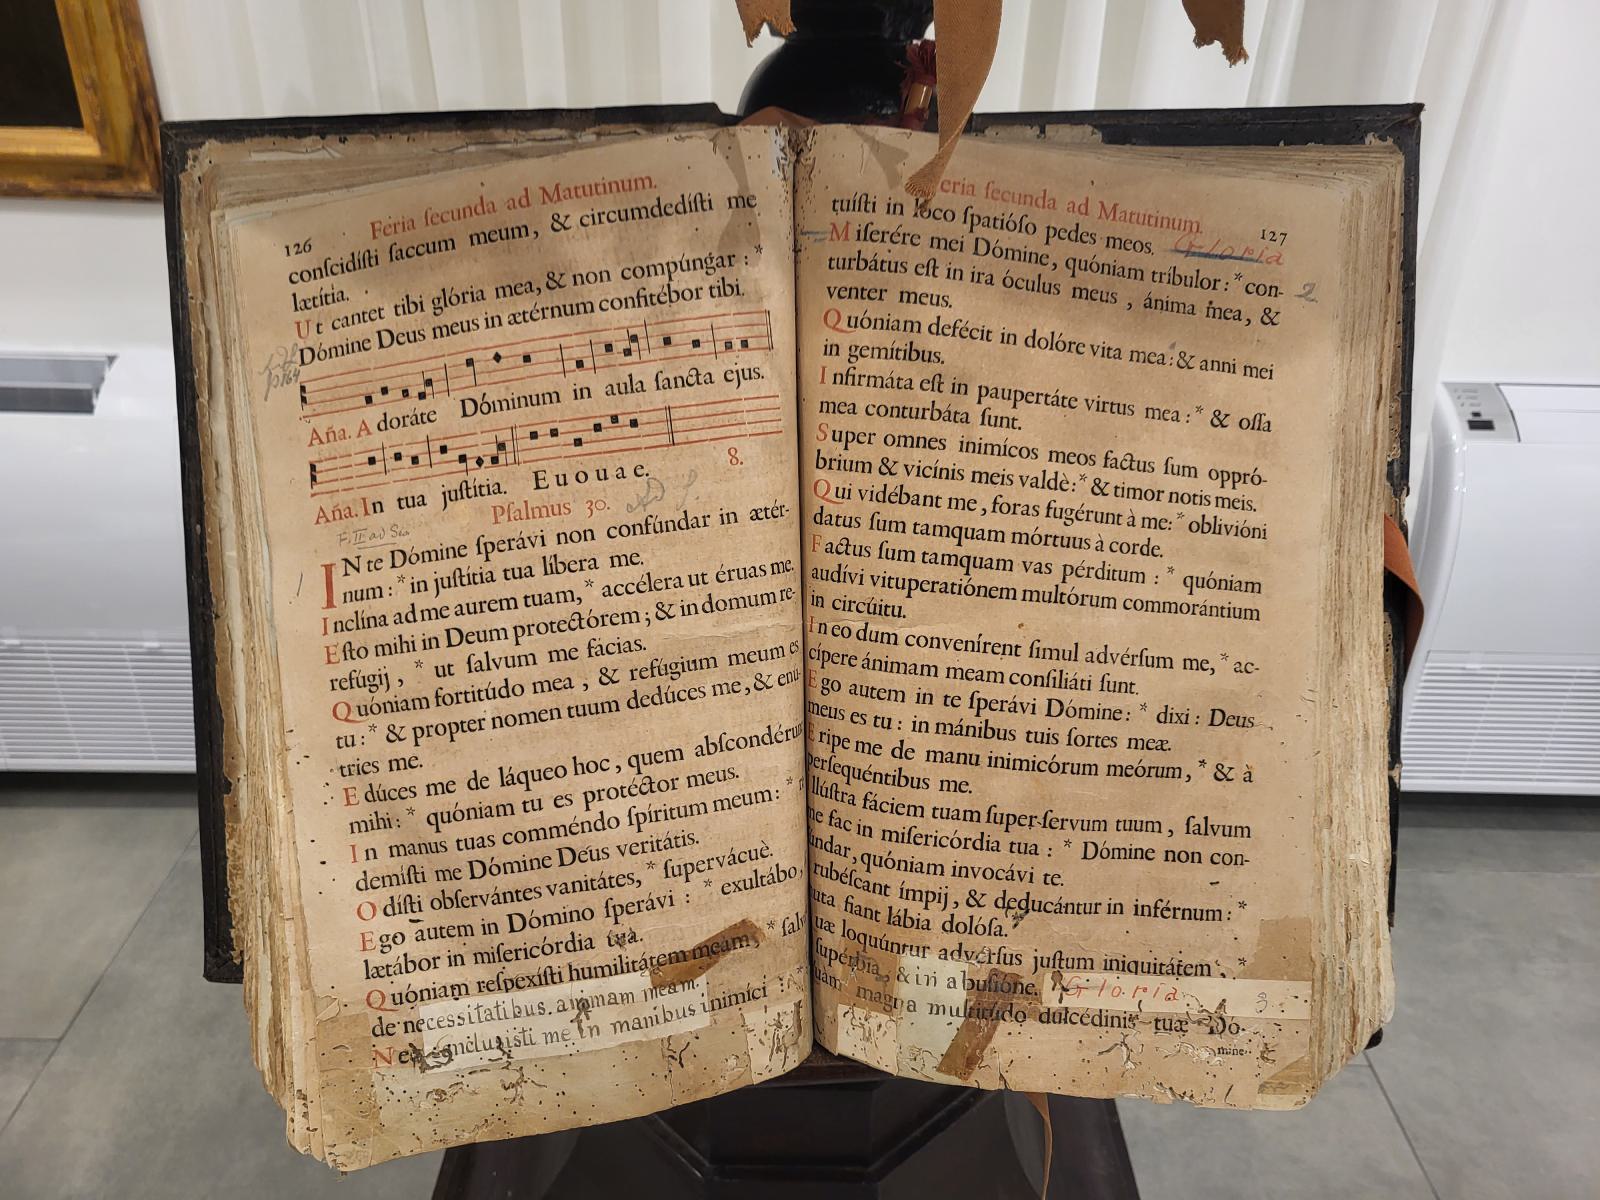 Feria ſecunda ad Matutinum.
126
conſcidíſti ſaccum meum, & circumdedíſti me
lætítia.
Ut cantet tibi glória mea, & non compúngar : *
Dómine Deus meus in ætérnum confitébor tibi.
Aña. A doráte Dóminum in aula ſancta ejus.
Aña. In tua juſtítia. E u o u a e. 8.
Pſalmus 30.
IN te Dómine ſperávi non confúndar in ætér-
num : * in juſtítia tua líbera me.
Inclína ad me aurem tuam, * accélera ut éruas me.
Eſto mihi in Deum protectórem ; & in domum re-
refúgij, * ut ſalvum me fácias.
Quóniam fortitúdo mea, & refúgium meum es
tu : * & propter nomen tuum dedúces me, & enú-
tries me.
Edúces me de láqueo hoc, quem abſcondérun
mihi : * quóniam tu es protéctor meus.
In manus tuas comméndo ſpíritum meum : *
demíſti me Dómine Deus veritátis.
Odíſti obſervántes vanitátes, * ſupervácuè.
Ego autem in Dómino ſperávi : * exultábo,
lætábor in miſericórdia tua.
Quóniam reſpexíſti humilitátem meam, * ſalv
de necessitatibus animam meam.
Ne conclusisti me in manibus inimíci : *
eria ſecunda ad Matutinum.
127
tuíſti in loco ſpatióſo pedes meos. Gloria
Miſerére mei Dómine, quóniam tríbulor : * con-
turbátus eſt in ira óculus meus, ánima mea, & 2
venter meus.
Quóniam defécit in dolóre vita mea : & anni mei
in gemítibus.
Infirmáta eſt in paupertáte virtus mea : * & oſſa
mea conturbáta ſunt.
Super omnes inimícos meos factus ſum oppró-
brium & vicínis meis valdè : * & timor notis meis.
Qui vidébant me, foras fugérunt à me : * oblivióni
datus ſum tamquam mórtuus à corde.
Factus ſum tamquam vas pérditum : * quóniam
audívi vituperatiónem multórum commorántium
in circúitu.
In eo dum convenírent ſimul advérſum me, * ac-
cípere ánimam meam conſiliáti ſunt.
Ego autem in te ſperávi Dómine : * dixi : Deus
meus es tu : in mánibus tuis ſortes meæ.
Eripe me de manu inimicórum meórum, * & à
perſequéntibus me.
llúſtra fáciem tuam ſuper ſervum tuum, ſalvum
me fac in miſericórdia tua : * Dómine non con-
úndar, quóniam invocávi te.
rubéſcant ímpij, & deducántur in inférnum : *
uta fiant lábia dolóſa.
uæ loquúntur advérſus juſtum iniquitátem, *
ſupérbia, & in abuſióne. Gloria 3
uàm magna multitúdo dulcédinis tuæ Dó-
mine